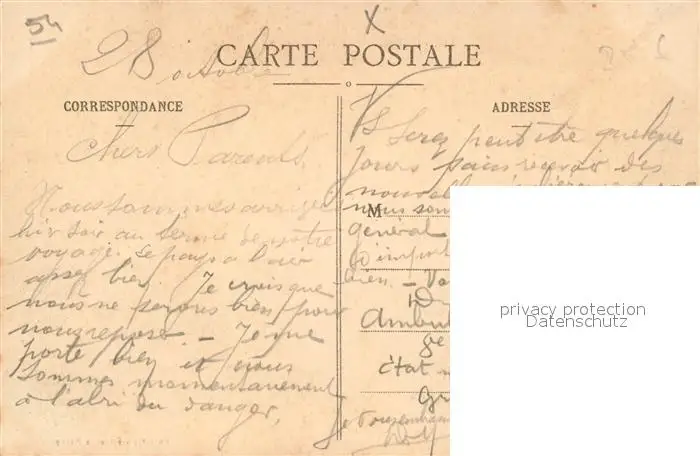 54
X
28 octobre
CARTE POSTALE
CORRESPONDANCE
Chers Parents
Nous sommes arrivés
hier soir au terme de notre
voyage. Le pays a l'air
assez bien. Je crois que
nous ne serons bien pour
nous reposer – Je me
porte bien et nous
sommes momentanément
à l'abri du danger,
ADRESSE
Vs serez peut être quelques
jours sans recevoir des
M
nous
général
bien. –
état
Je vous embrasse
privacy protection
Datenschutz